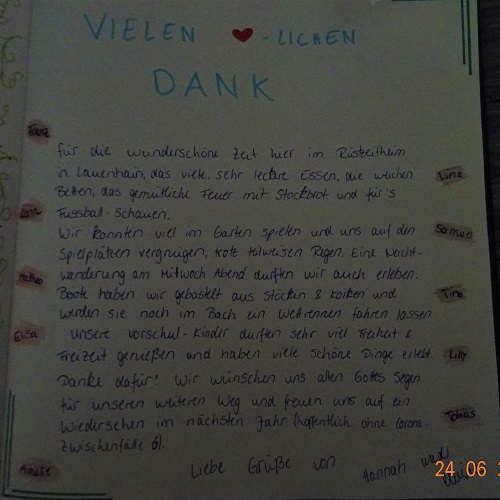 VIELEN ♥-LICHEN
DANK
für die wunderschöne Zeit hier im Rüstzeitheim
in Lauenhain, das viele, sehr leckere Essen, die weichen
Betten, das gemütliche Feuer mit Stockbrot und für's
Fussball-Schauen.
Wir konnten viel im Garten spielen und uns auf den
Spielplätzen vergnügen, trotz teilweisen Regen. Eine Nacht-
wanderung am Mittwoch Abend durften wir auch erleben.
Boote haben wir gebastelt aus Stöcken & Korken und
werden sie noch im Bach ein Wettrennen fahren lassen.
Unsere Vorschul-Kinder durften sehr viel Freiheit &
Freizeit genießen und haben viele schöne Dinge erlebt.
Danke dafür! Wir wünschen uns allen Gottes Segen
für unseren weiteren Weg und freuen uns auf ein
Wiedersehen im nächsten Jahr (hoffentlich ohne Corona-
Zwischenfälle
Liebe Grüße von Hannah und
Franz
Lina
Samuel
Tina
Elisa
Lilly
Tobias
24.06